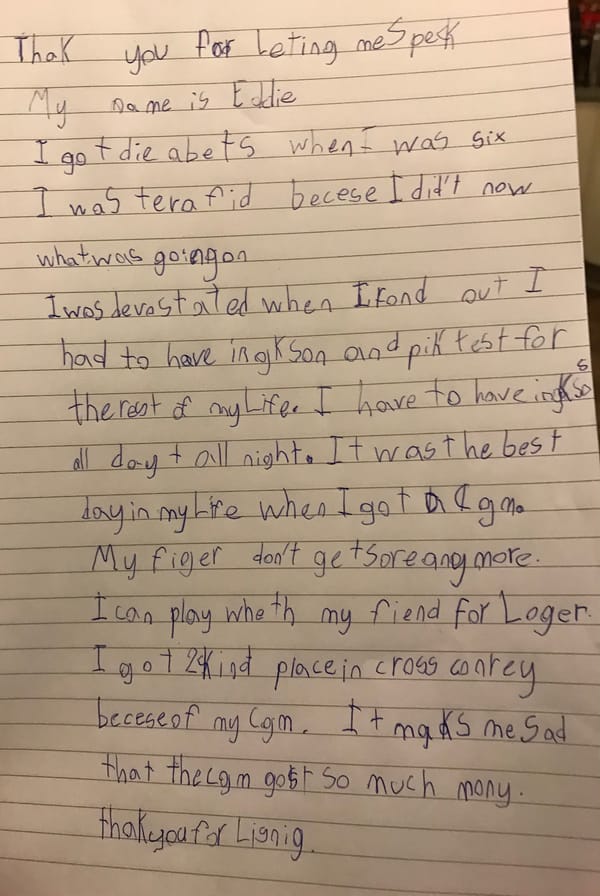 Thak you for Leting me Speck
My name is Eddie
I got die abets when I was six
I was terafid becese I did't now
what was going on
I was devastated when I fond out I
had to have ingkson and pik test for
the rest of my Life. I have to have ingkso s
all day + all night. It was the best
day in my Life when I got a Cgm.
My figer don't get sore any more.
I can play wheth my fiend for Loger.
I got 2kind place in cross conrey
becese of my Cgm. It maks me Sad
that the cgm gost so much mony.
thak you for Lignig.